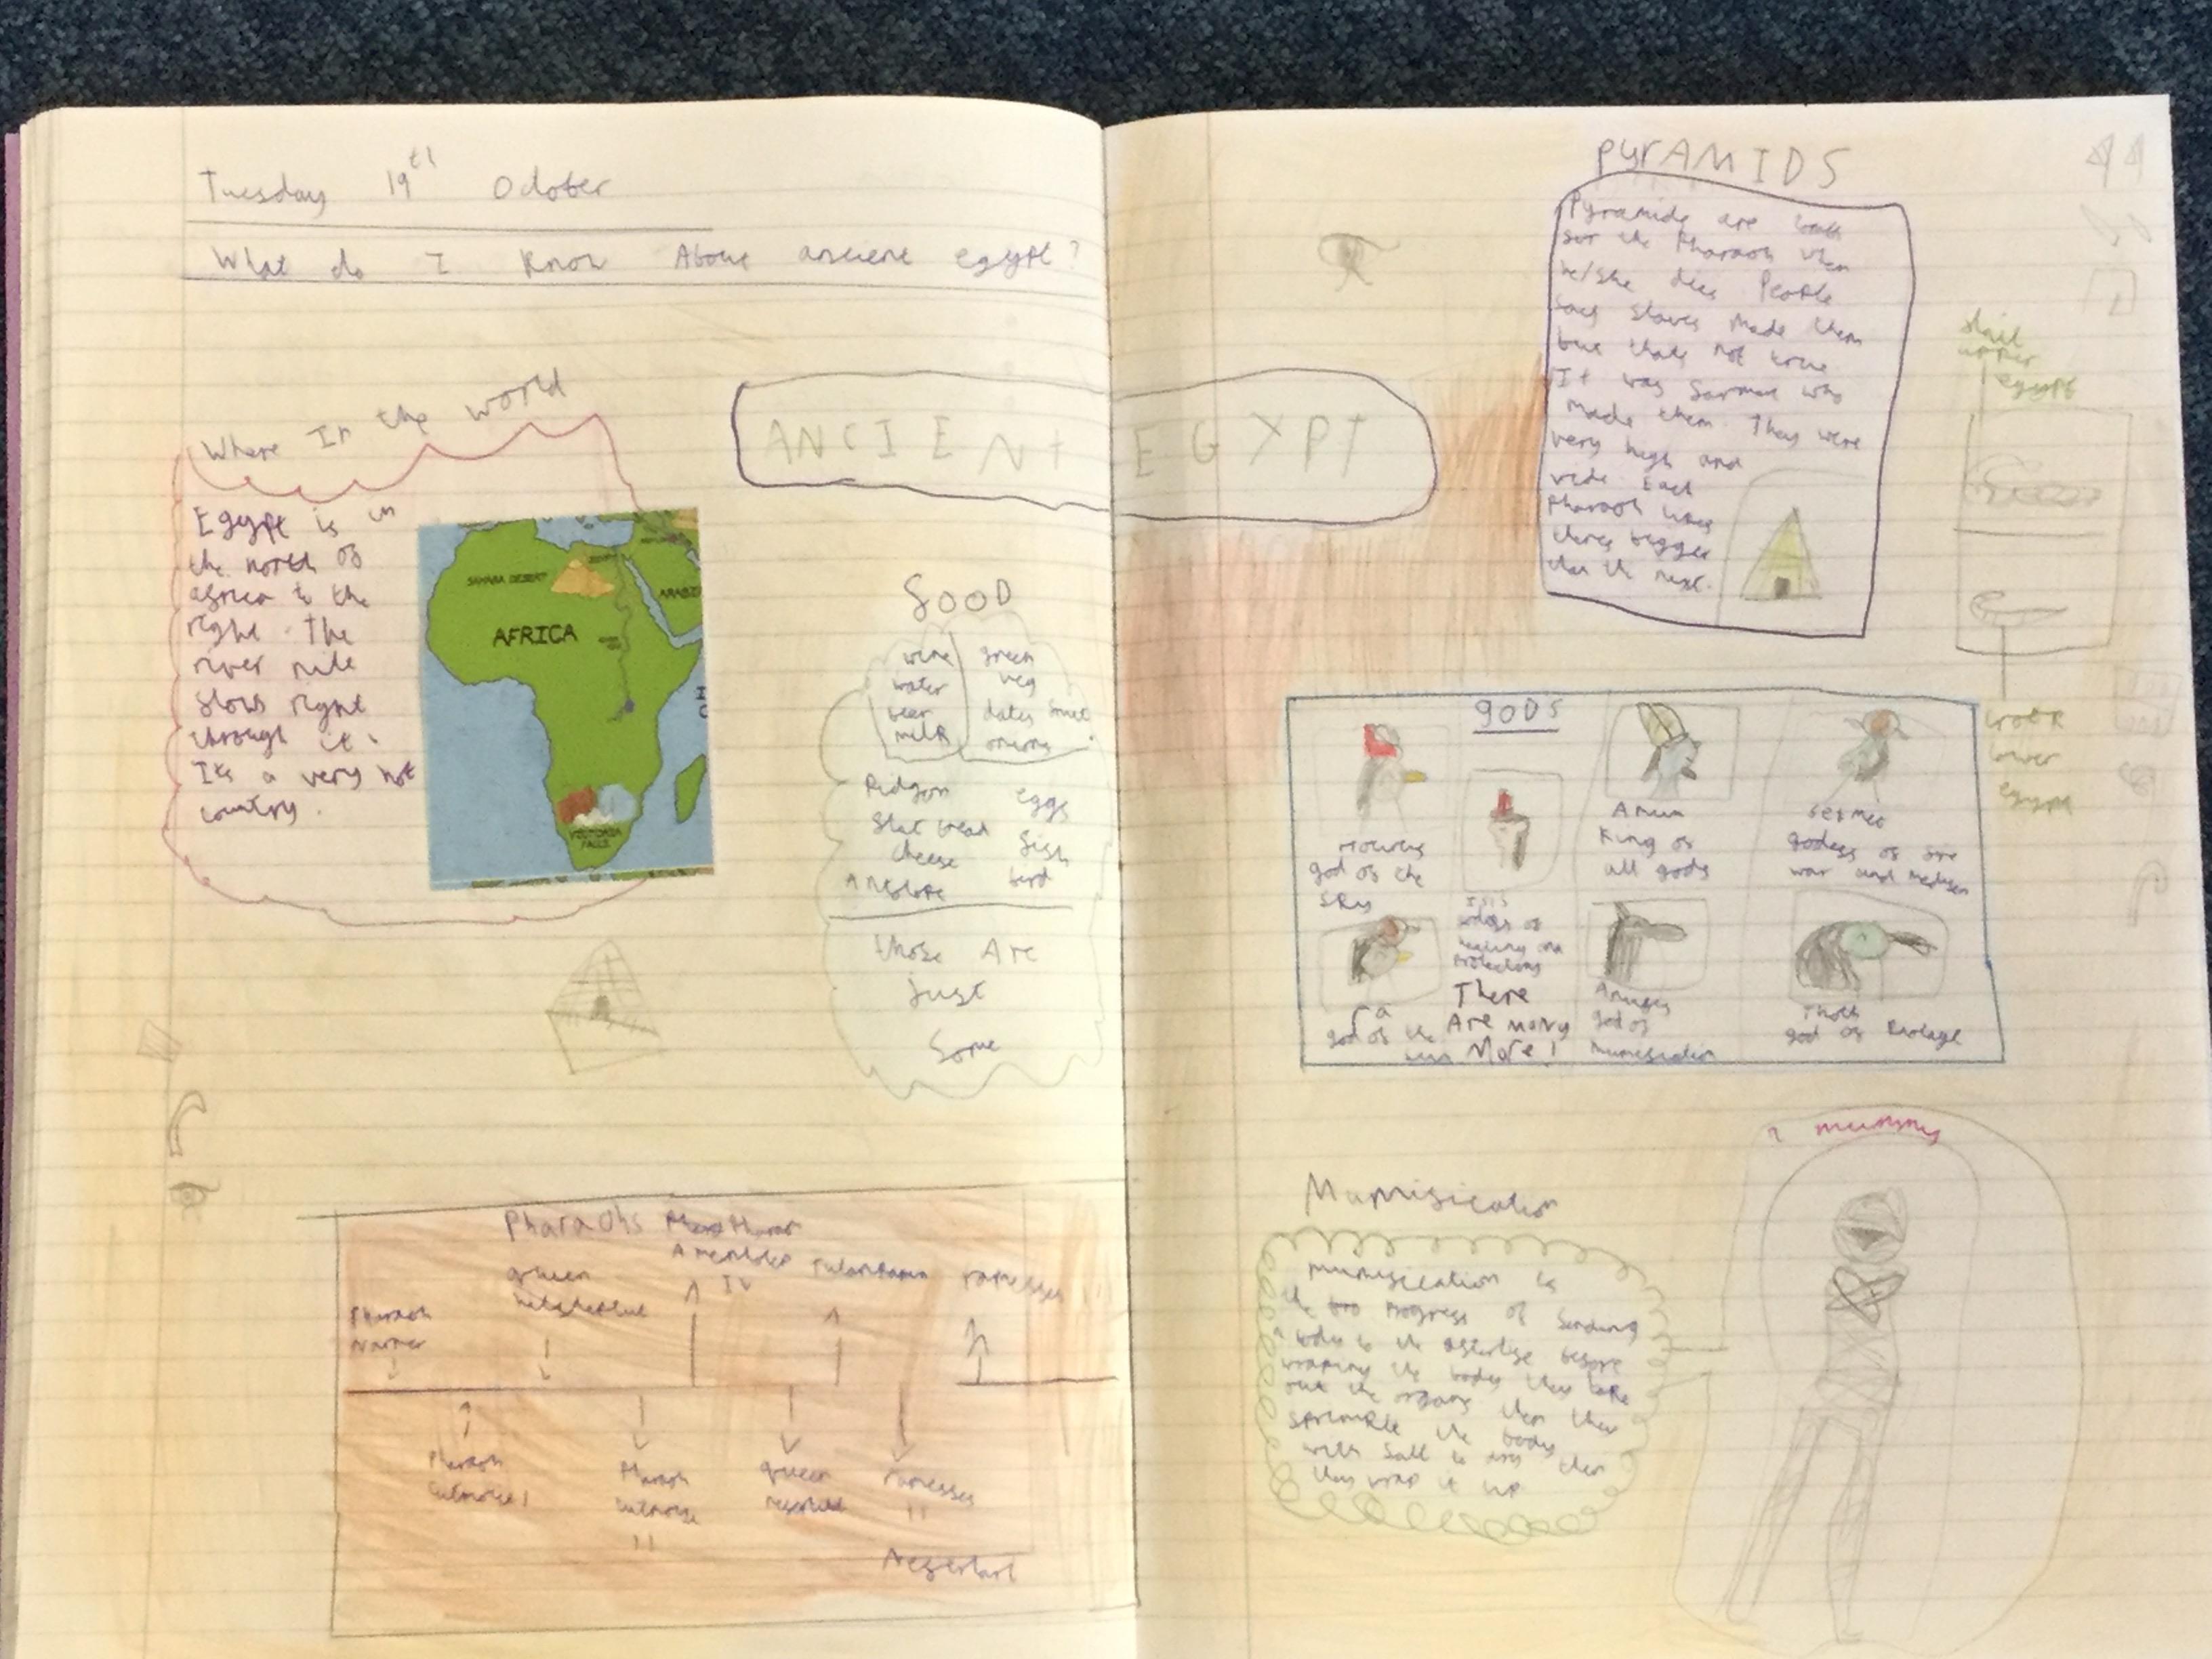 Tuesday 19th October
What do I Know About ancient egypt?
Where In the world
Egypt is in
the north of
africa to the
right. The
river nile
flows right
through it.
Its a very hot
country.
SAHARA DESERT
AFRICA
VICTORIA
FALLS
ANCIENT EGYPT
food
wine
water
beer
milk
green
veg
dates fruit
onions
Pidgon
flat bread
cheese
Antolope
eggs
fish
bird
those Are
just
Some
Pharaohs
Amenhotep
IV
queen
Pharaoh
Narmer
Pharaoh
Pharaoh
II
queen
ramesses
II
Nefertari
pyrAMIDS
Pyramids are
for the Pharaoh when
he/she dies People
say slaves made them
but thats not true
It was farmer who
made them. They were
very high and
wide. Each
Pharaoh
theres bigger
than the next.
upper
egypt
lower
egypt
gODS
god of the
sky
ISIS
godess of
healing and
Amun
King of
all gods
godess of fire
war and
ra
god of the
sun
There
Are many
More!
god of
Thoth
god of
Mumification
mumification is
the progress of sending
a body to the afterlife before
wraping the body they take
out the organs then they
sprinkle the body
with salt to dry then
they wrap it up
a mummy